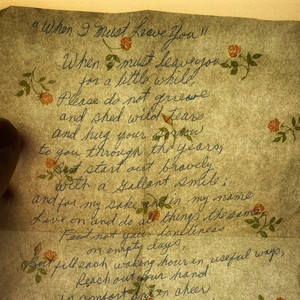 "When I Must Leave You"
When I must leave you
for a little while
Please do not grieve
and shed wild tears
and hug your sorrow
to you through the years,
But start out bravely
with a Gallant smile;
and for my sake and in my name
Live on and do all things the same,
Feed not your loneliness
on empty days,
But fill each waking hour in useful ways,
Reach out your hand
to comfort and in cheer